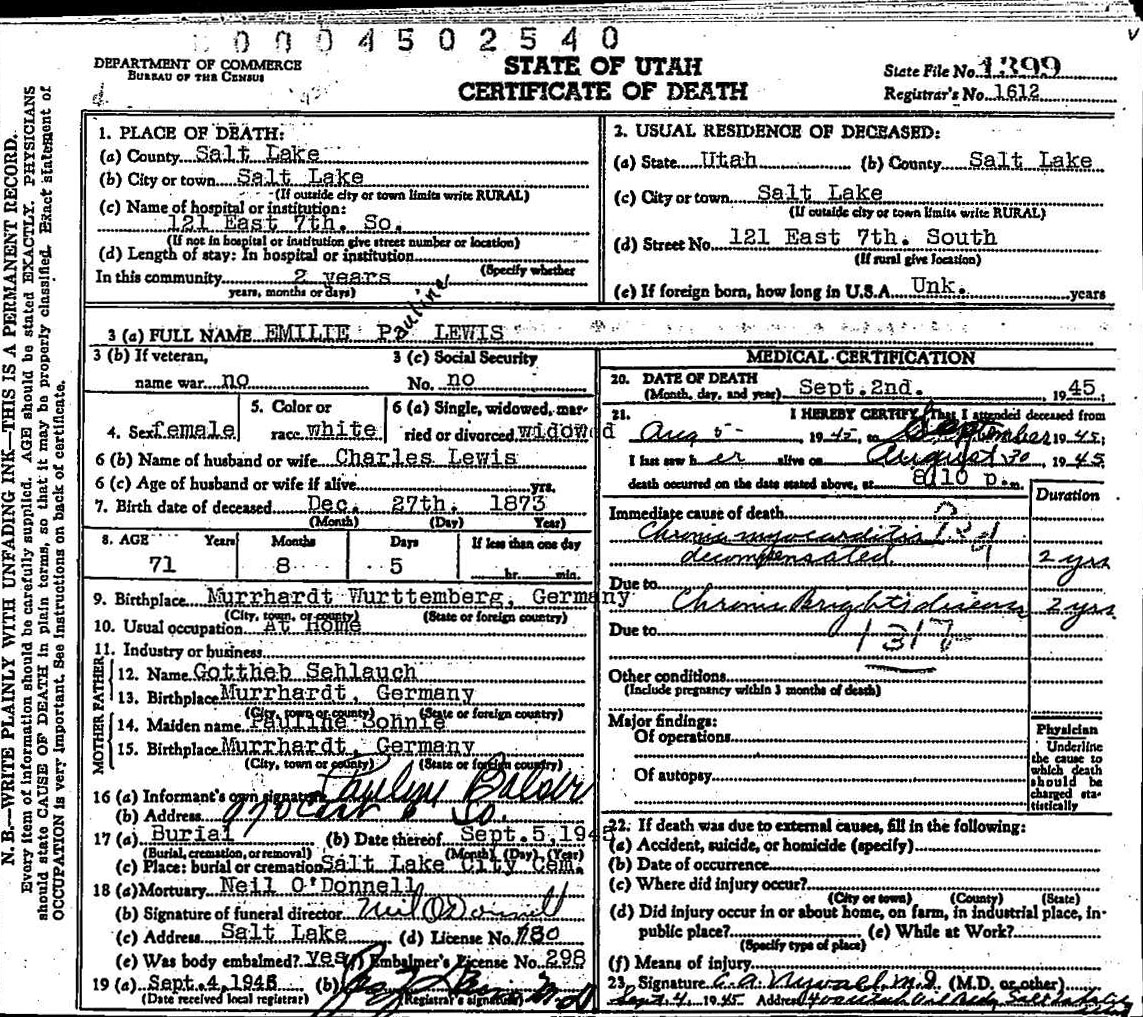 0004502540
DEPARTMENT OF COMMERCE
BUREAU OF THE CENSUS
STATE OF UTAH
CERTIFICATE OF DEATH
State File No. 1399
Registrar's No. 1612
N. B.—WRITE PLAINLY WITH UNFADING INK—THIS IS A PERMANENT RECORD.
Every item of information should be carefully supplied. AGE should be stated EXACTLY. PHYSICIANS
should state CAUSE OF DEATH in plain terms, so that it may be properly classified. Exact statement of
OCCUPATION is very important. See instructions on back of certificate.
1. PLACE OF DEATH:
(a) County Salt Lake
(b) City or town Salt Lake
(If outside city or town limits write RURAL)
(c) Name of hospital or institution:
121 East 7th. So.
(If not in hospital or institution give street number or location)
(d) Length of stay: In hospital or institution
(Specify whether
In this community 2 years
years, months or days)
2. USUAL RESIDENCE OF DECEASED:
(a) State Utah (b) County Salt Lake
(c) City or town Salt Lake
(If outside city or town limits write RURAL)
(d) Street No. 121 East 7th. South
(If rural give location)
(e) If foreign born, how long in U.S.A. Unk. years
3 (a) FULL NAME EMILIE P. Pauline LEWIS
3 (b) If veteran,
name war no
3 (c) Social Security
No. no
4. Sex female
5. Color or
race white
6 (a) Single, widowed, mar-
ried or divorced widowed
6 (b) Name of husband or wife Charles Lewis
6 (c) Age of husband or wife if alive yrs.
7. Birth date of deceased Dec. 27th. 1873
(Month) (Day) Year)
8. AGE Years Months Days If less than one day
71 8 5 hr. min.
9. Birthplace Murrhardt Wurttemberg, Germany
(City, town, or county) (State or foreign country)
10. Usual occupation At Home
11. Industry or business
FATHER
12. Name Gottheb Sehlauch
13. Birthplace Murrhardt, Germany
(City, town or county) (State or foreign country)
MOTHER
14. Maiden name Pauline Bohnle
15. Birthplace Murrhardt, Germany
(City, town or county) (State or foreign country)
16 (a) Informant's own signature Pauline
(b) Address So.
17 (a) Burial (b) Date thereof Sept.5,1945
(Burial, cremation, or removal) (Month) (Day) (Year)
(c) Place: burial or cremation Salt Lake City Cem.
18 (a) Mortuary Neil O'Donnell
(b) Signature of funeral director Neil O'Donnell
(c) Address Salt Lake (d) License No. 180
(e) Was body embalmed? yes (f) Embalmer's License No. 298
19 (a) Sept.4,1945 (b)
(Date received local registrar) (Registrar's signature)
MEDICAL CERTIFICATION
20. DATE OF DEATH
(Month, day, and year) Sept.2nd. 1945
21. I HEREBY CERTIFY, That I attended deceased from
Aug 5 1945, to September 1945;
I last saw her alive on August 30, 1945
death occurred on the date stated above, at 8:10 p.m.
Duration
Immediate cause of death
Chronic myocarditis
decompensated 2 yrs
Due to Chronic Brights disease 2 yrs
Due to
Other conditions
(Include pregnancy within 3 months of death)
Major findings:
Of operations
Of autopsy
Physician
Underline
the cause to
which death
should be
charged sta-
tistically
22. If death was due to external causes, fill in the following:
(a) Accident, suicide, or homicide (specify)
(b) Date of occurrence
(c) Where did injury occur?
(City or town) (County) (State)
(d) Did injury occur in or about home, on farm, in industrial place, in-
public place? (e) While at Work?
(Specify type of place)
(f) Means of injury
23. Signature M.D. (M.D. or other)
Sept. 4, 1945 Address